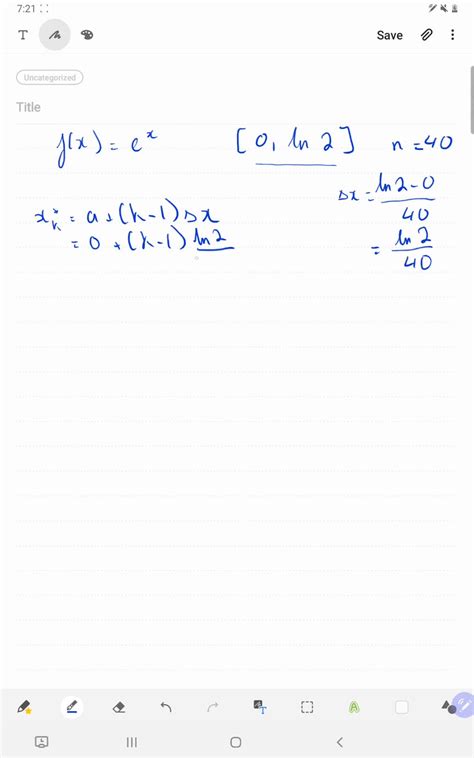 7:21
T
Save
Uncategorized
Title
f(x) = e^x [0, ln 2] n = 40
Δx = (ln 2 - 0)/40
x_k^* = a + (k-1) Δx
= 0 + (k-1) ln 2
= ln 2/40
T
A